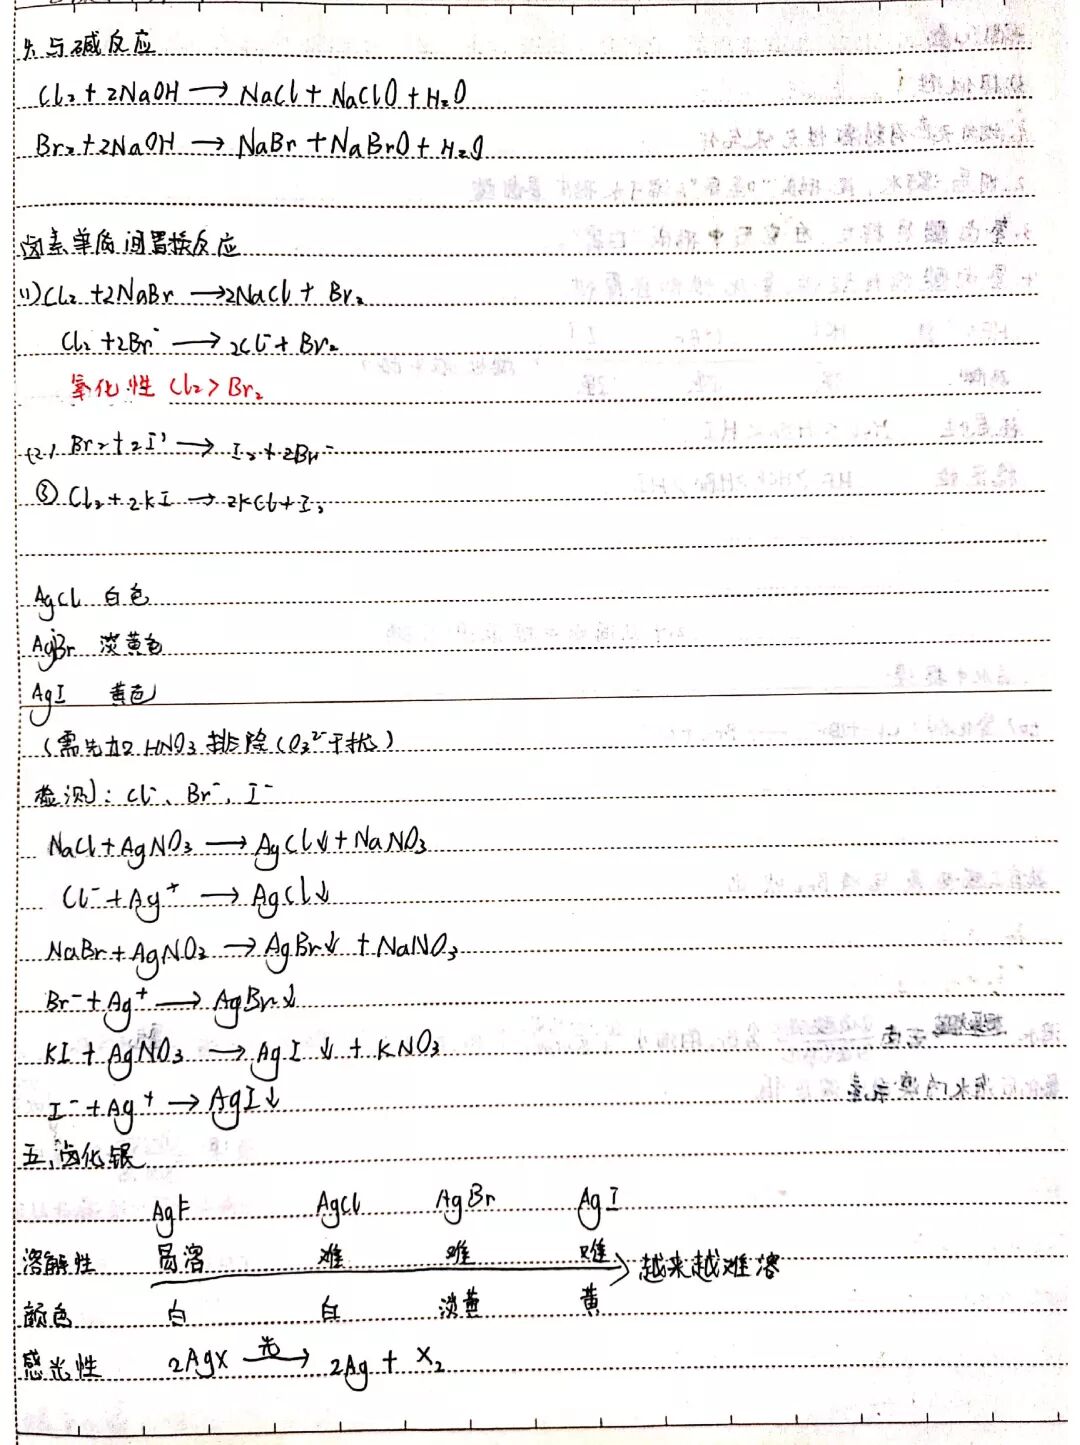 与碱反应
Cl₂ + 2NaOH → NaCl + NaClO + H₂O
Br₂ + 2NaOH → NaBr + NaBrO + H₂O
卤素单质间置换反应
(1) Cl₂ + 2NaBr → 2NaCl + Br₂
Cl₂ + 2Br⁻ → 2Cl⁻ + Br₂
氧化性 Cl₂ > Br₂
(2) Br₂ + 2I⁻ → I₂ + 2Br⁻
③ Cl₂ + 2KI → 2KCl + I₂
AgCl 白色
AgBr 淡黄色
AgI 黄色
(需先加HNO₃排除CO₃²⁻干扰)
检测: Cl⁻、Br⁻、I⁻
NaCl + AgNO₃ → AgCl↓ + NaNO₃
Cl⁻ + Ag⁺ → AgCl↓
NaBr + AgNO₃ → AgBr↓ + NaNO₃
Br⁻ + Ag⁺ → AgBr↓
KI + AgNO₃ → AgI↓ + KNO₃
I⁻ + Ag⁺ → AgI↓
五、卤化银
AgF AgCl AgBr AgI
溶解性 易溶 难 难 难 越来越难溶
颜色 白 白 淡黄 黄
感光性 2AgX 光→ 2Ag + X₂